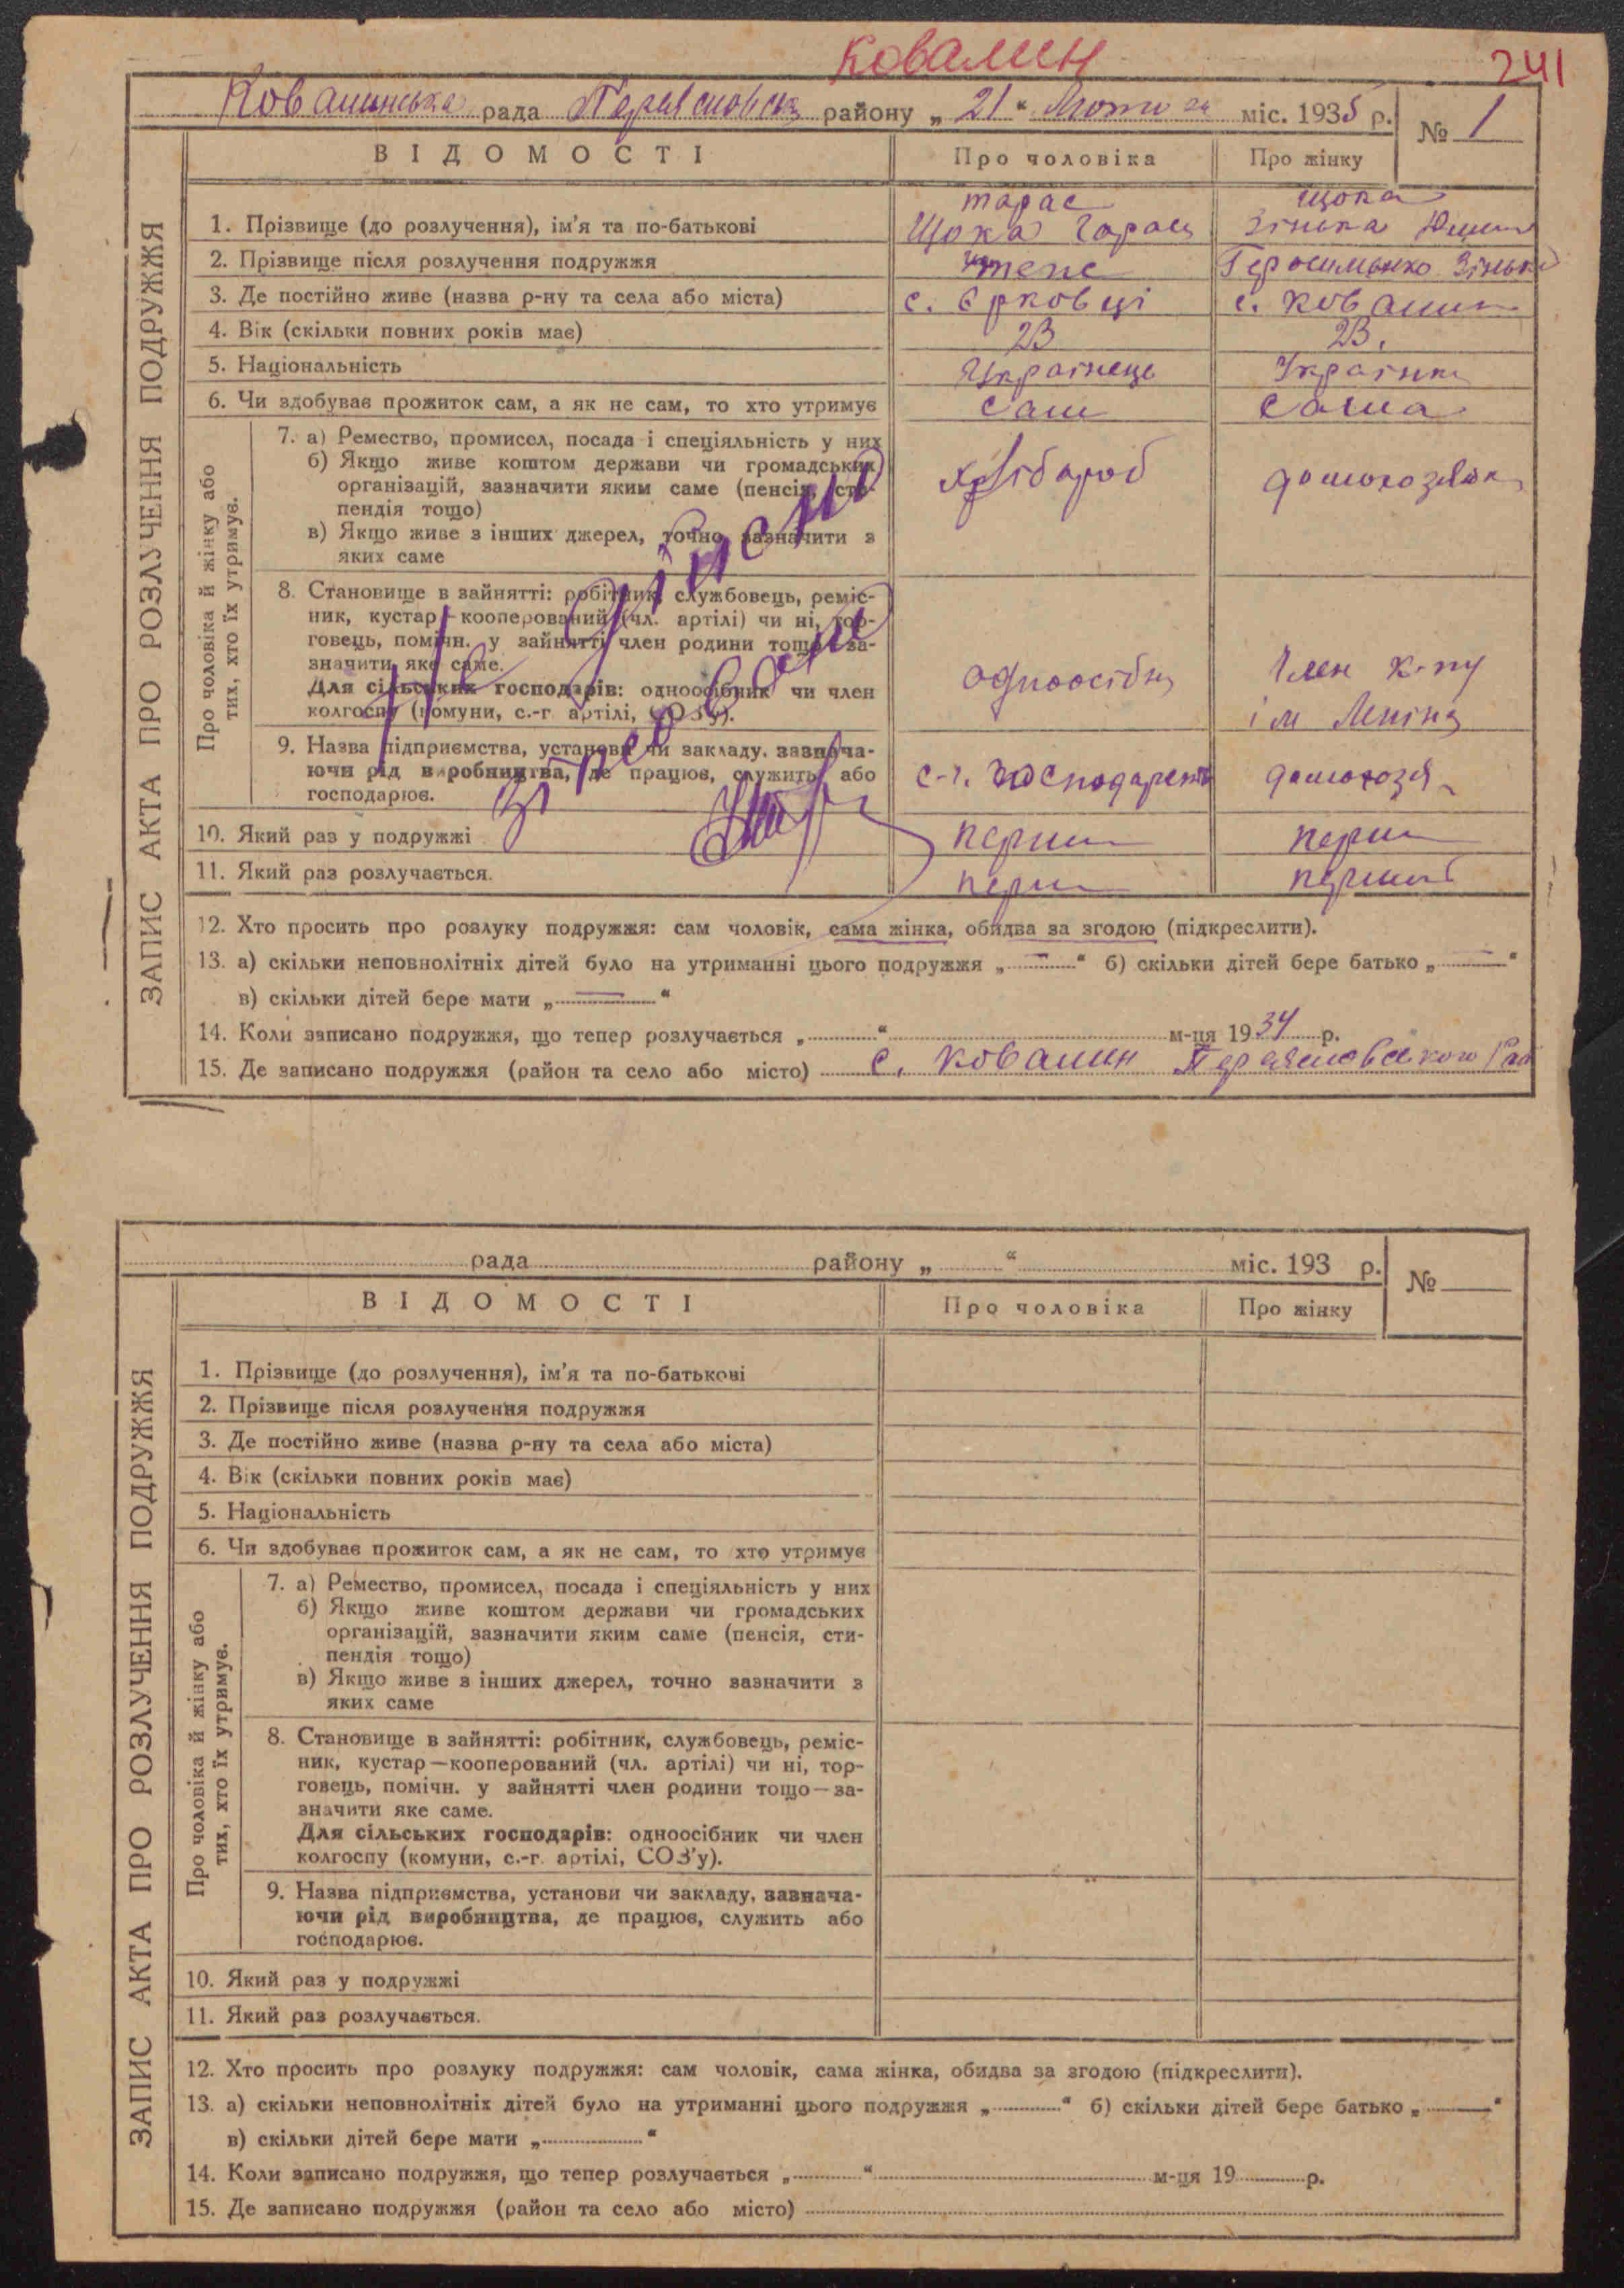 Ковалин
241
рада Переяславськ району „ 21 “ Лютого міс. 1935 р. № 1
ВІДОМОСТІ Про чоловіка Про жінку
ЗАПИС АКТА ПРО РОЗЛУЧЕННЯ ПОДРУЖЖЯ
Тарас Щока
1. Прізвище (до розлучення), ім'я та по-батькові Щока Зінька
2. Прізвище після розлучення подружжя теж Герасименко Зінька
3. Де постійно живе (назва р-ну та села або міста) с. Єрковці с. Ковалин
4. Вік (скільки повних років має) 23 23.
5. Національність Українець Українка
6. Чи здобуває прожиток сам, а як не сам, то хто утримує Сам Сама
Про чоловіка й жінку або
тих, хто їх утримує.
7. а) Ремество, промисел, посада і спеціяльність у них
б) Якщо живе коштом держави чи громадських
організацій, зазначити яким саме (пенсія, сти-
пендія тощо)
хлібароб домохозяйка
в) Якщо живе з інших джерел, точно зазначити з
яких саме
8. Становище в зайнятті: робітник, службовець, реміс-
ник, кустар—кооперований (чл. артілі) чи ні, тор-
говець, помічн. у зайнятті член родини тощо—за-
значити яке саме.
Для сільських господарів: одноосібник чи член
колгоспу (комуни, с.-г. артілі, СОЗ'у).
одноосібн Член к-пу
ім Леніна
9. Назва підприємства, установи чи закладу, зазнача-
ючи рід виробництва, де працює, служить або
господарює.
с-г. господарст домохозя
Не дійсний
10. Який раз у подружжі перши перши
11. Який раз розлучається. перши перший
12. Хто просить про розлуку подружжя: сам чоловік, сама жінка, обидва за згодою (підкреслити).
13. а) скільки неповнолітніх дітей було на утриманні цього подружжя „ — “ б) скільки дітей бере батько „ — “
в) скільки дітей бере мати „ — “
14. Коли записано подружжя, що тепер розлучається „ “ м-ця 1934 р.
15. Де записано подружжя (район та село або місто) с. Ковалин Переяславського Рай
рада району „ “ міс. 193 р. №
ВІДОМОСТІ Про чоловіка Про жінку
ЗАПИС АКТА ПРО РОЗЛУЧЕННЯ ПОДРУЖЖЯ
1. Прізвище (до розлучення), ім'я та по-батькові
2. Прізвище після розлучення подружжя
3. Де постійно живе (назва р-ну та села або міста)
4. Вік (скільки повних років має)
5. Національність
6. Чи здобуває прожиток сам, а як не сам, то хто утримує
Про чоловіка й жінку або
тих, хто їх утримує.
7. а) Ремество, промисел, посада і спеціяльність у них
б) Якщо живе коштом держави чи громадських
організацій, зазначити яким саме (пенсія, сти-
пендія тощо)
в) Якщо живе з інших джерел, точно зазначити з
яких саме
8. Становище в зайнятті: робітник, службовець, реміс-
ник, кустар—кооперований (чл. артілі) чи ні, тор-
говець, помічн. у зайнятті член родини тощо—за-
значити яке саме.
Для сільських господарів: одноосібник чи член
колгоспу (комуни, с.-г. артілі, СОЗ'у).
9. Назва підприємства, установи чи закладу, зазнача-
ючи рід виробництва, де працює, служить або
господарює.
10. Який раз у подружжі
11. Який раз розлучається.
12. Хто просить про розлуку подружжя: сам чоловік, сама жінка, обидва за згодою (підкреслити).
13. а) скільки неповнолітніх дітей було на утриманні цього подружжя „ “ б) скільки дітей бере батько „ “
в) скільки дітей бере мати „ “
14. Коли записано подружжя, що тепер розлучається „ “ м-ця 19 р.
15. Де записано подружжя (район та село або місто)